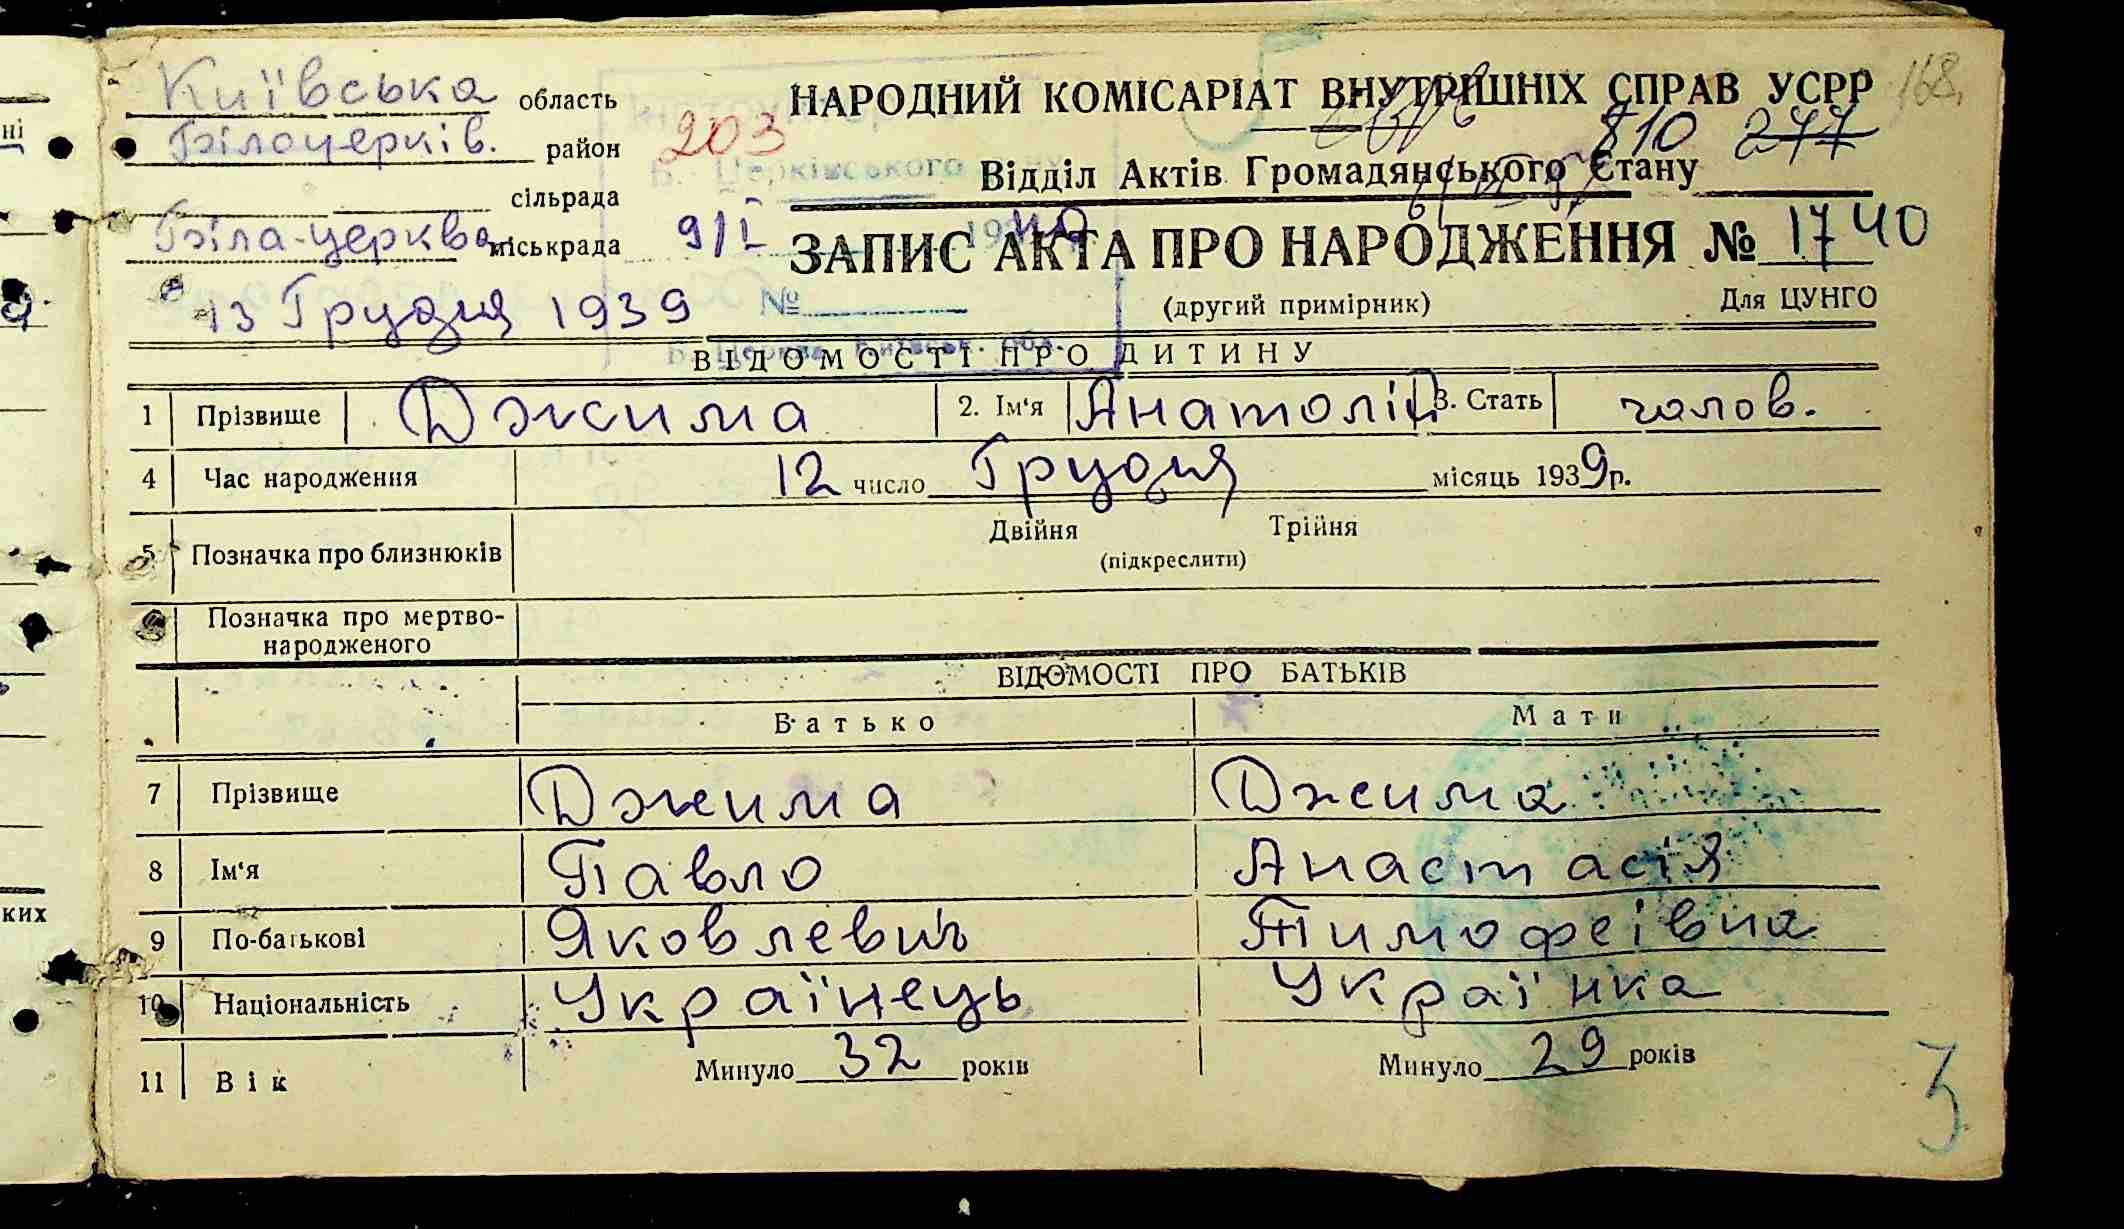 Київська область
НАРОДНИЙ КОМІСАРІАТ ВНУТРІШНІХ СПРАВ УСРР 168
Білоцерків. район 203
810 277
Відділ Актів Громадянського Стану
сільрада
Б. Церківського
Біла-церква міськрада 9/І 1940
ЗАПИС АКТА ПРО НАРОДЖЕННЯ № 1740
13 Грудня 1939 №
(другий примірник) Для ЦУНГО
Б. Церква, Київськ. Обл.
ВІДОМОСТІ ПРО ДИТИНУ
1 Прізвище Джима 2. Ім'я Анатолій 3. Стать чолов.
4 Час народження 12 число Грудня місяць 1939 р.
5 Позначка про близнюків Двійня Трійня
(підкреслити)
Позначка про мертво-
народженого
ВІДОМОСТІ ПРО БАТЬКІВ
Батько Мати
7 Прізвище Джима Джима
8 Ім'я Павло Анастасія
9 По-батькові Яковлевич Тимофеівна
10 Національність Українець Українка
11 Вік Минуло 32 років Минуло 29 років
3
ні
ких